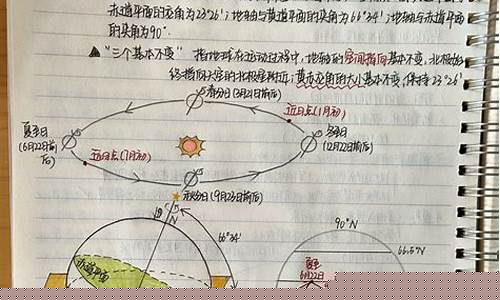 赤道平面的交角为23°26′；地轴与黄道平面的夹角为66°34′；地轴与赤道平面
的夹角为90°.
▲"三个基本不变" 指地球在运动过程中，地轴的空间指向基本不变，北极始
终指向天空的北极星附近；黄赤交角的大小基本不变，保持23°26′
春分日(3月21日前后)
近日点(1月初)
夏至日
(6月22日前
后)
冬至日
(12月22日前后)
远日点(7月初)
秋分日(9月23日前后)
N
66°34′
90°N
66.5°N
赤道平面
夏至
6月22日